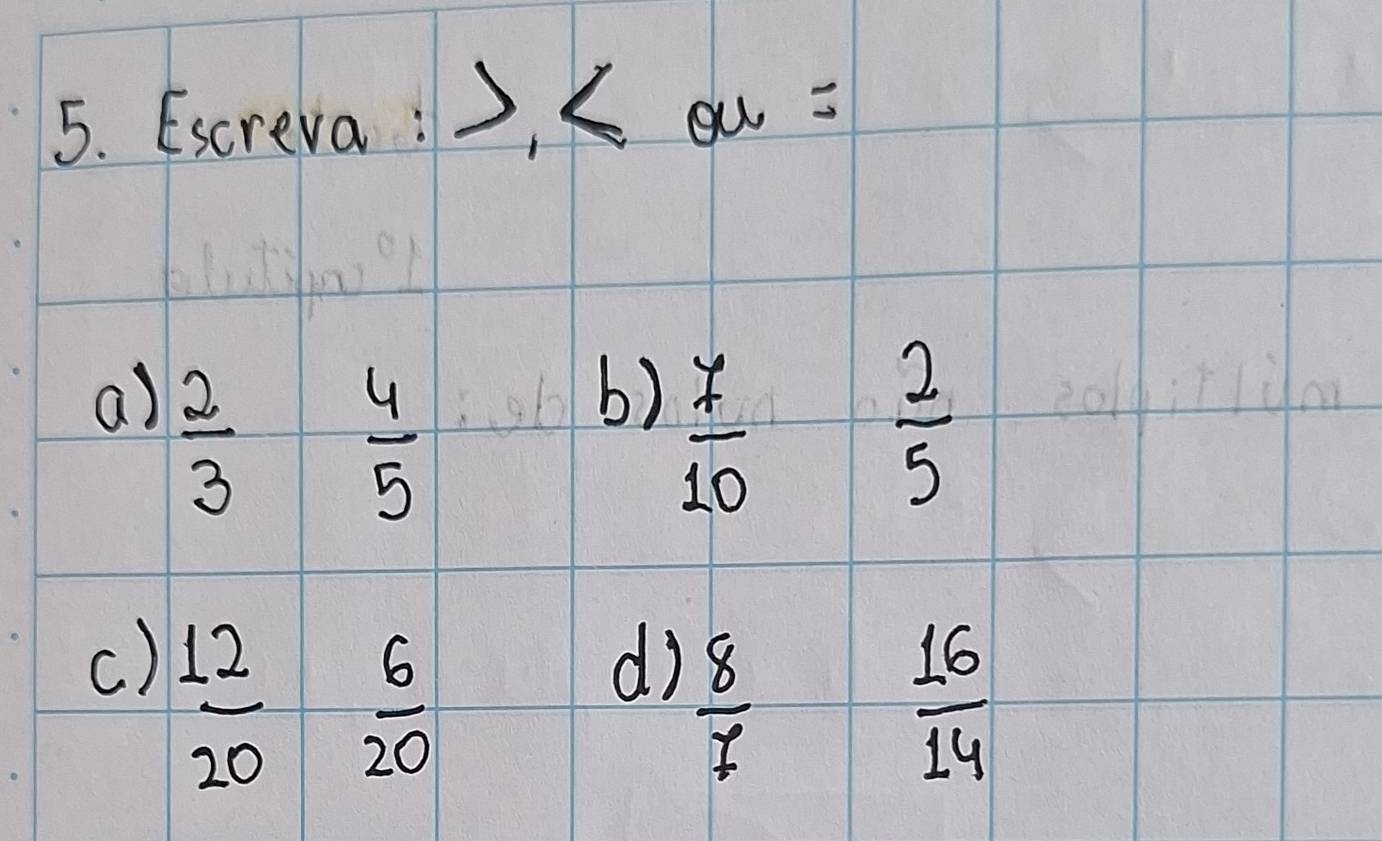 5. Escreva : >, < ou =
a) 2/3 4/5 b) 7/10 2/5
c) 12/20 6/20 d) 8/7 16/14